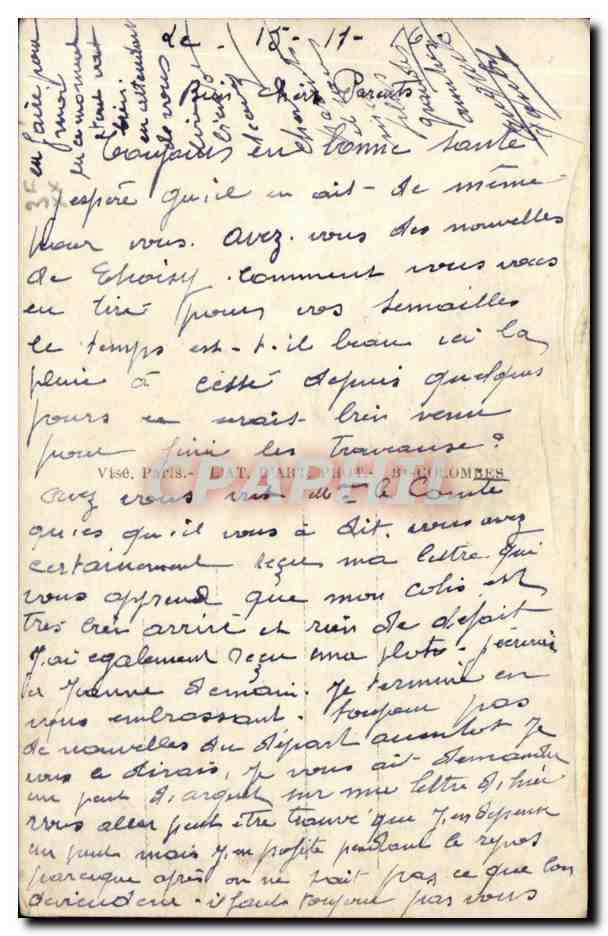 Le 15-11-
Biens Chers Parents
Toujours en bonne santé
j'espère qu'il en ait-de même
pour vous. Avez-vous des nouvelles
de Choisy. Comment vous vous
en tiré pour vos semailles
le temps est-t-il beau ici la
pluie à céssé depuis quelques
jours un mais bien venu
pour finir les travause?
Visé, Paris.- L'AT. D'ART PHOT. - Bs-COLOMBES
PAPHIL
Avez vous vus Mr le Comte
qu'es qu'il vous à dit. vous avez
certainement reçu ma lettre qui
vous apprend que mon colis est
très bien arrivé et rien de défait
J'ai également reçu ma photo - j'écrirai
à Jeanne demain. Je termine en
vous embrassant. toujours pas
de nouvelles du départ aussitot je
vous le dirais, Je vous ait-demander
un peut d'argent sur une lettre d'hier
vous aller peut être trouvé que j'en dépense
un peut mais j'en profite pendant le repos
parceque après on ne sait pas ce que l'on
deviendra - il faut toujours pas vous
en faire pour
moi
en ce moment
tout vat
bien
en attendant
de vous